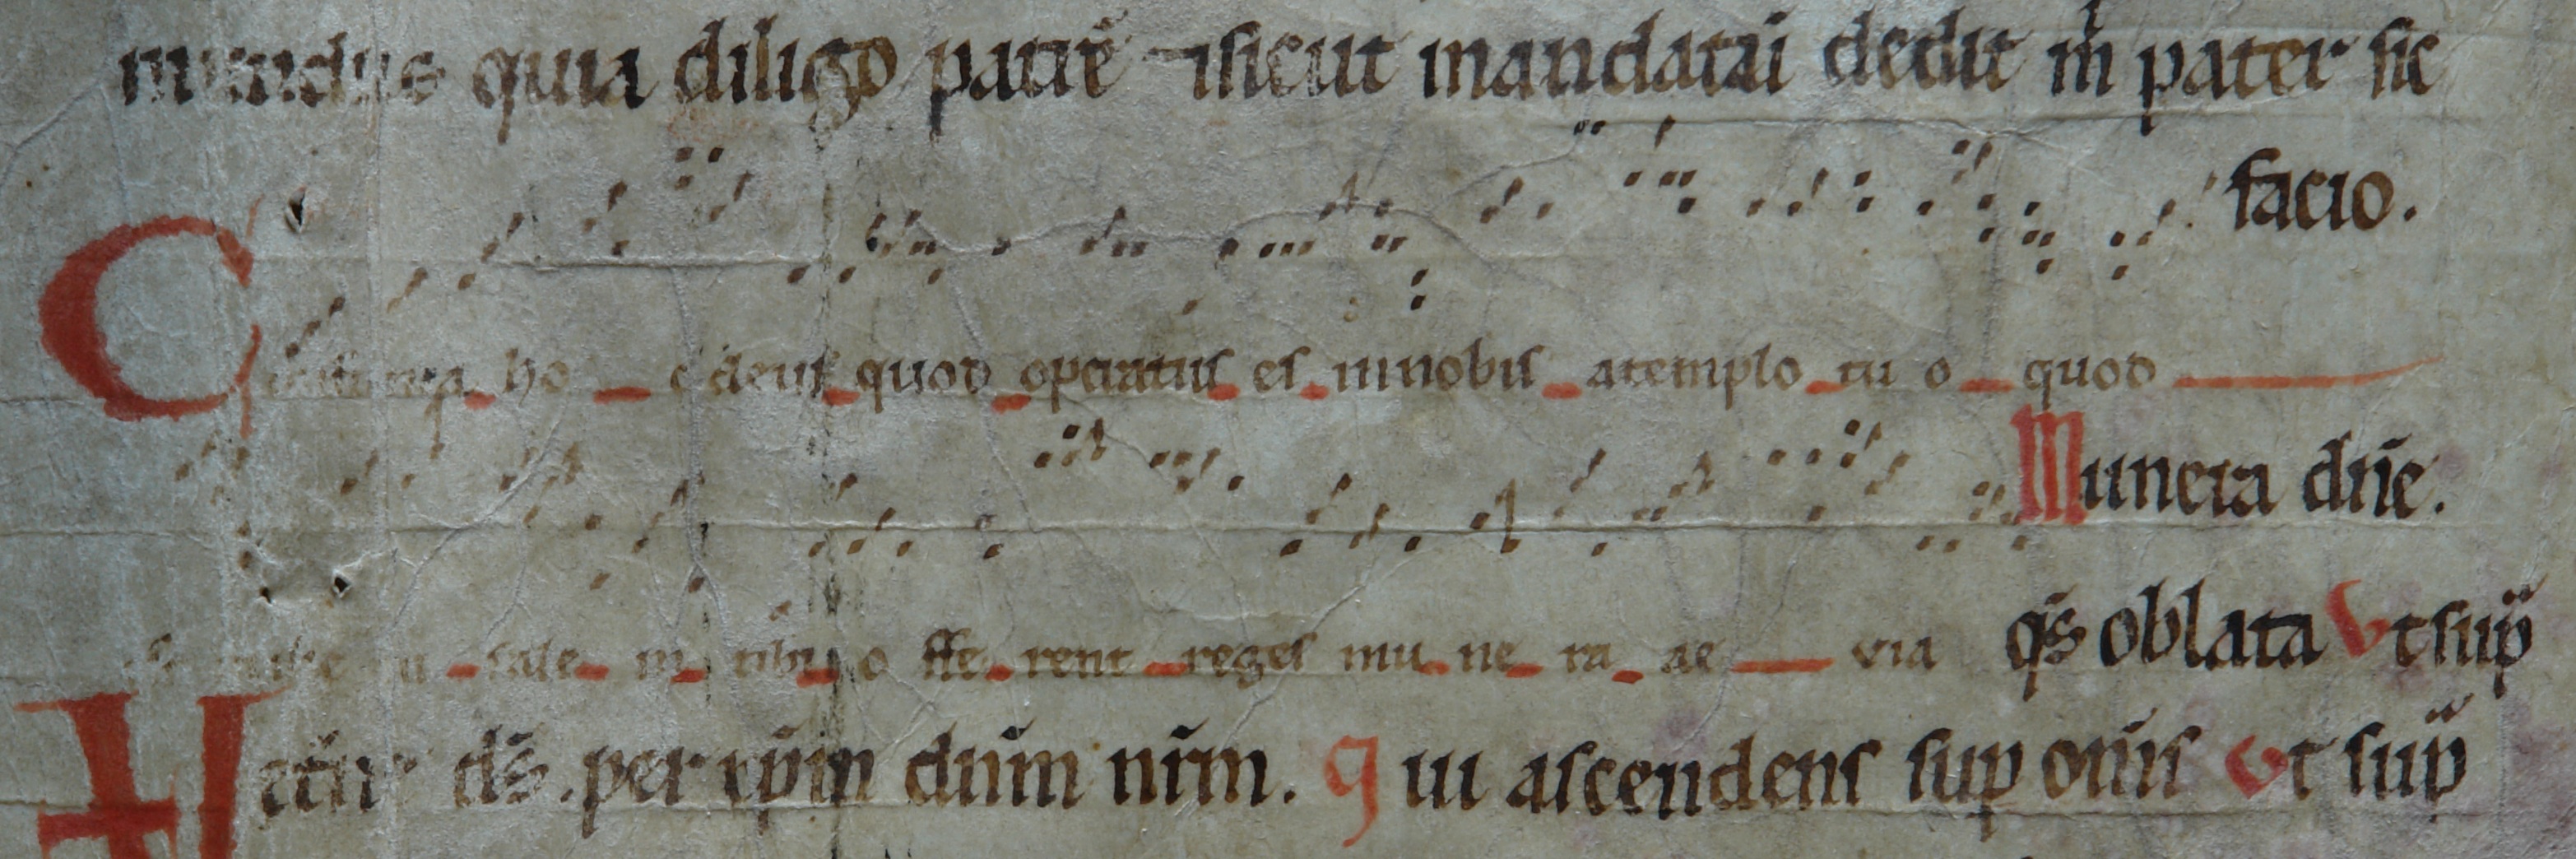 mundus quia diligo patrē ⁊ sicut mandatū dedit m̄ pater sic
facio.
Confirma ho c deus quod operatus es in nobis a templo tu o quod
est in ihe ru sale m tibi o ffe rent reges mu ne ra ae via
Munera dn̄e.
qs̄ oblata Ut sup̄
ds̄. per xp̄m dn̄m nr̄m. qui ascendens sup om̄s ut sup̄